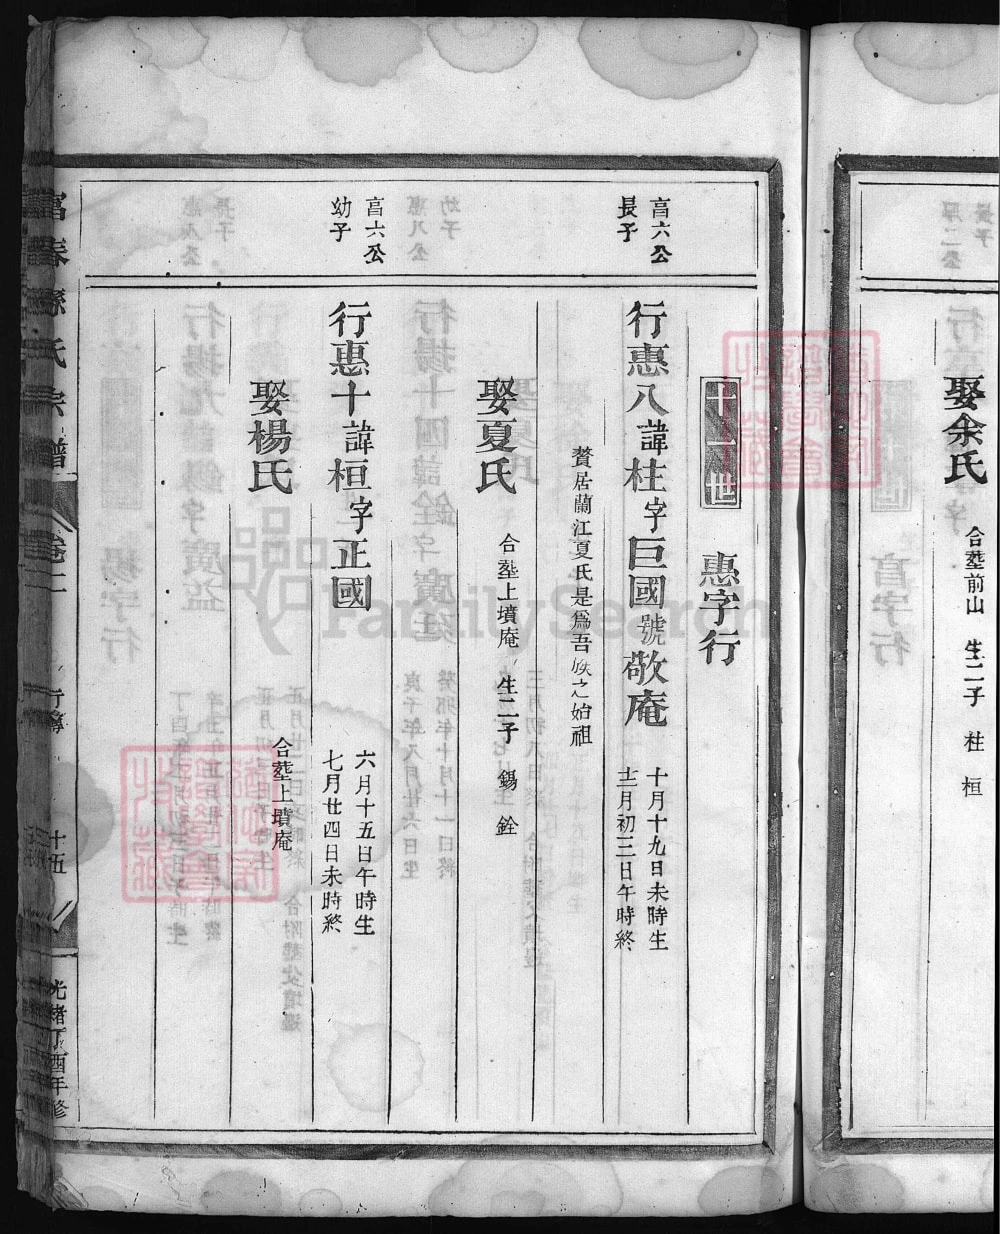 娶余氏
合塟前山　生二子　柱　桓
十一世　惠字行
亯六公
長子
行惠八諱柱字巨國號敬庵
十月十九日未時生
十二月初三日午時終
贅居蘭江夏氏是爲吾族之始祖
娶夏氏
合塟上墳庵　生二子　錫　銓
亯六公
幼子
行惠十諱桓字正國
六月十五日午時生
七月廿四日未時終
娶楊氏
合塟上墳庵
富春孫氏宗譜
卷二
行簿
十五
光緒丁酉年修
FamilySearch